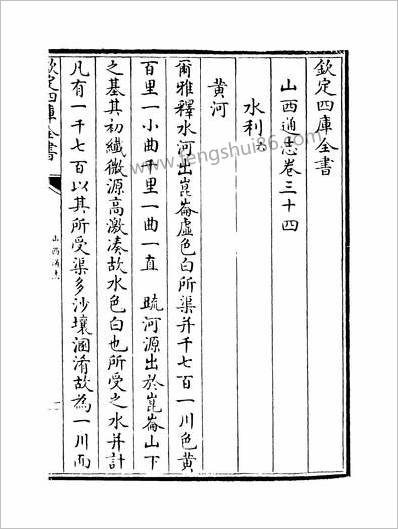 欽定四庫全書
山西通志卷三十四
水利六
黄河
爾雅釋水河出崑崙虛色白所渠并千七百一川色黄
百里一小曲千里一曲一直 疏河源出於崑崙山下
之基其初纎微源高激湊故水色白也所受之水并計
凡有一千七百以其所受渠多沙壤溷淆故為一川而
欽定四庫全書
山西通志
一
www.fengshui86.com